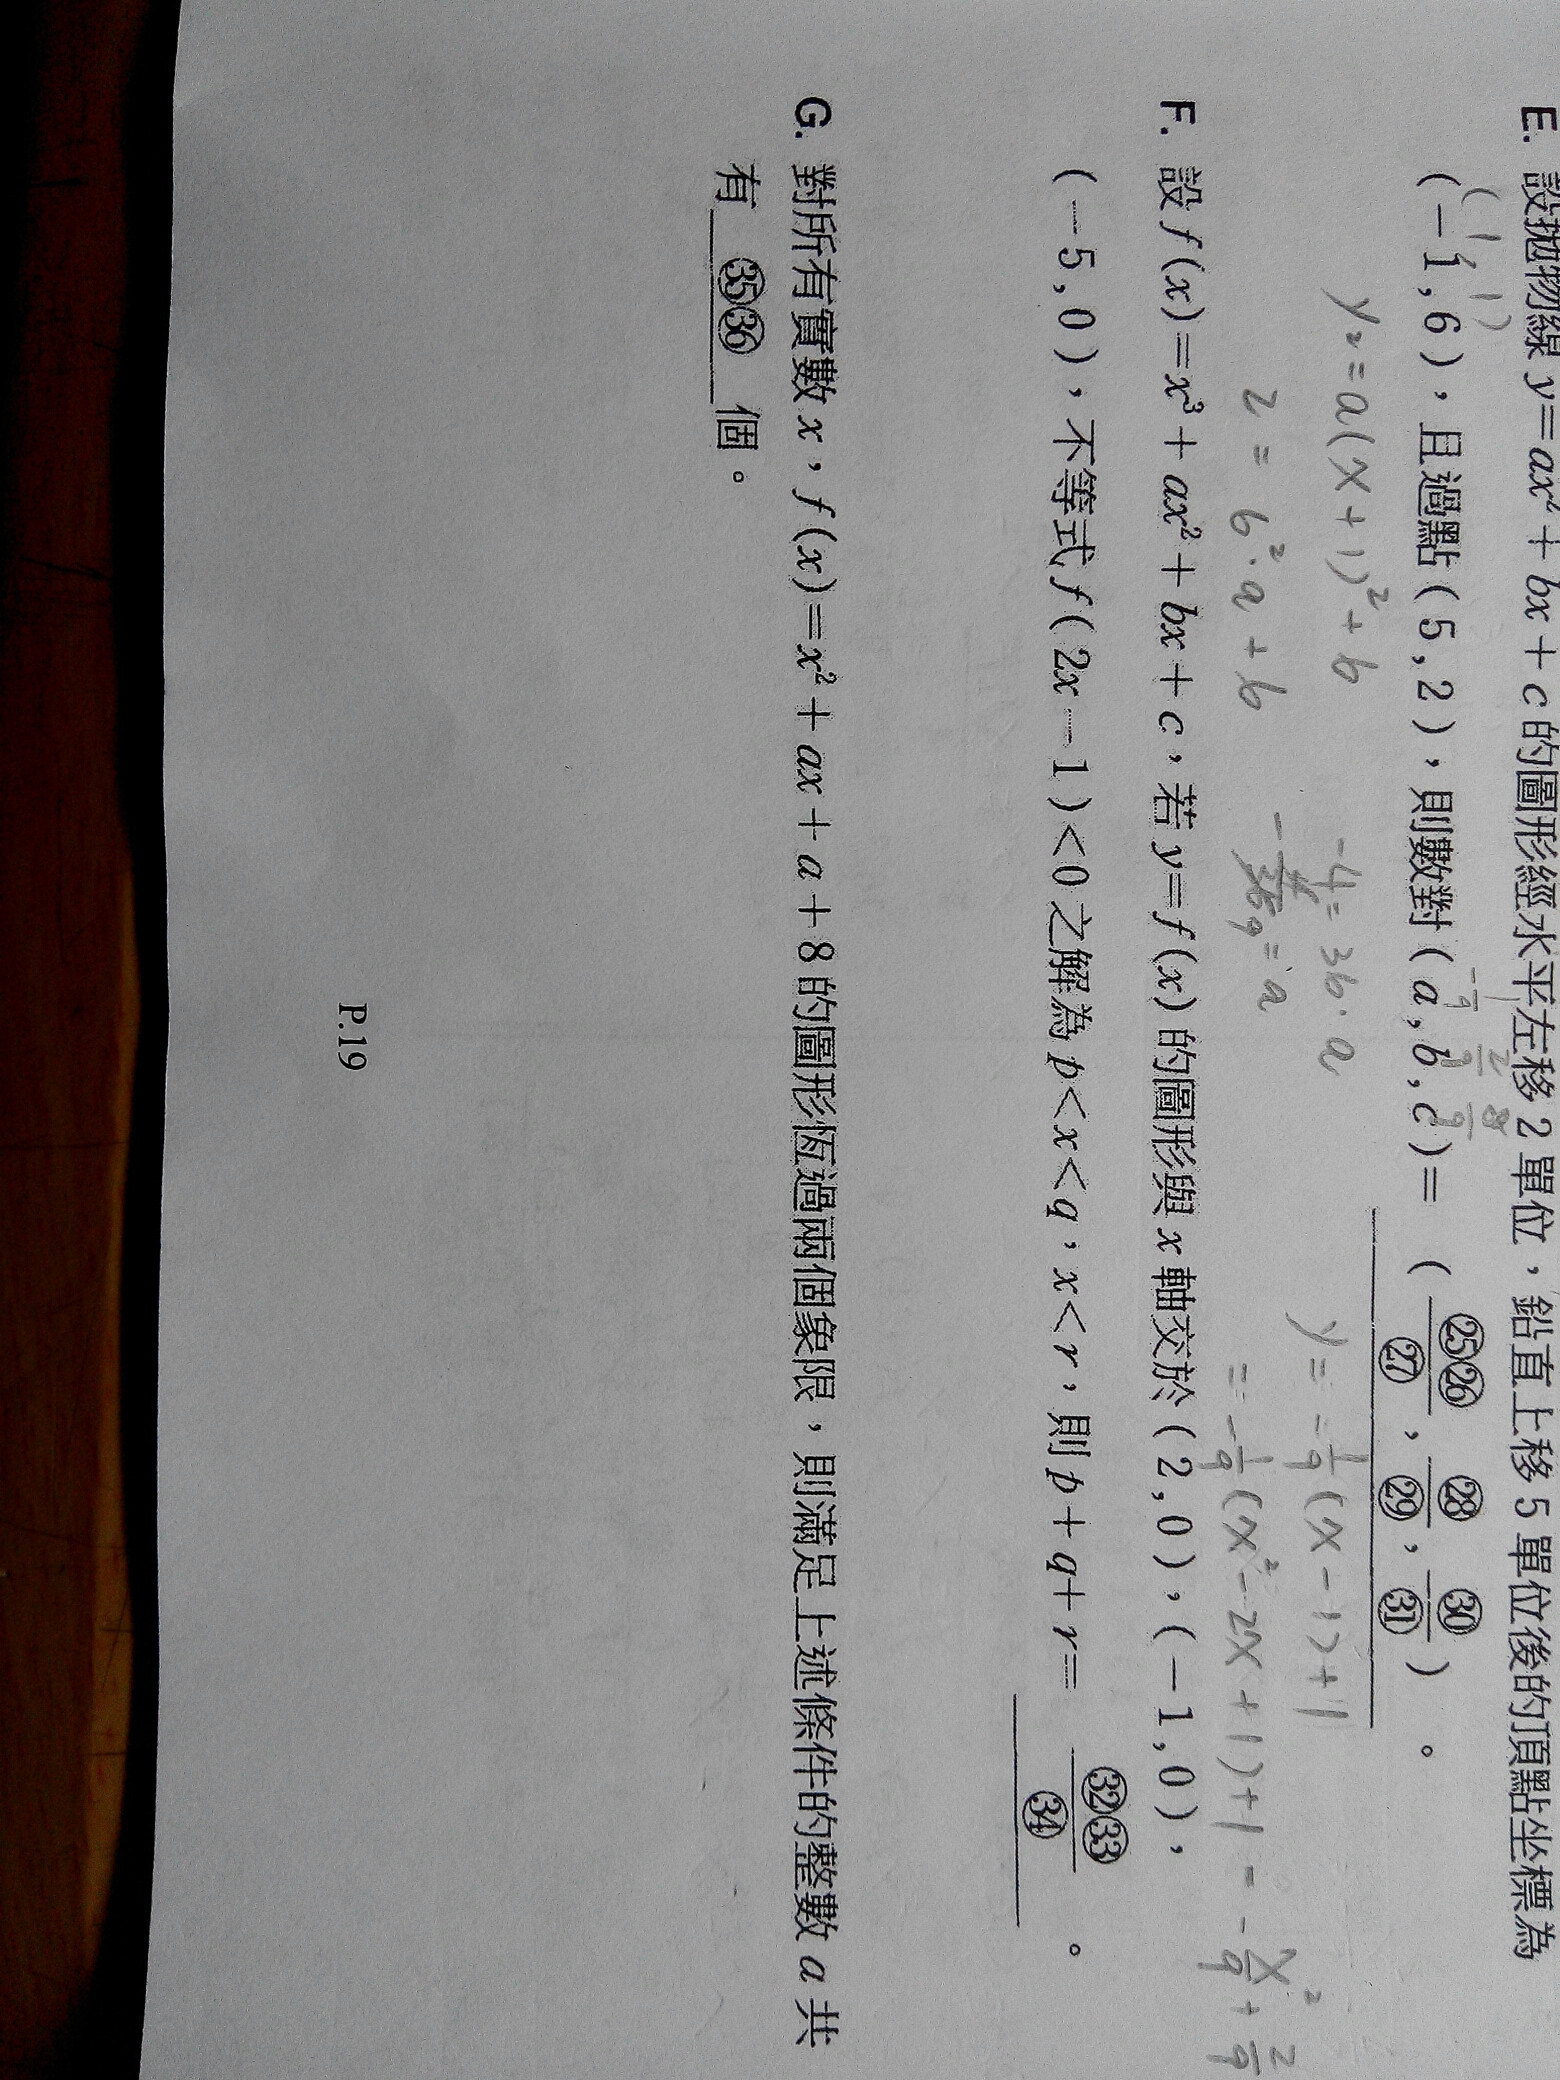 E. 設拋物線 y=ax²+bx+c 的圖形經水平左移 2 單位，鉛直上移 5 單位後的頂點坐標為
(1, 1)
(-1,6)，且過點(5,2)，則數對(a,b,c)= (㉕㉖/㉗, ㉘/㉙, ㉚/㉛)。
-1/9 2/9 8/9
y=a(x+1)²+b
-4=36·a
y=-1/9(x-1)+1
2=6²·a+b
=a
=-1/9(x²-2x+1)+1=-x²/9+2/9
F. 設 f(x)=x³+ax²+bx+c，若 y=f(x) 的圖形與 x 軸交於(2,0)，(-1,0)，
(-5,0)，不等式 f(2x-1)<0 之解為 p<x<q，x<r，則 p+q+r= ㉜㉝/㉞。
G. 對所有實數 x，f(x)=x²+ax+a+8 的圖形恆過兩個象限，則滿足上述條件的整數 a 共
有 ㉟㊱ 個。
P.19